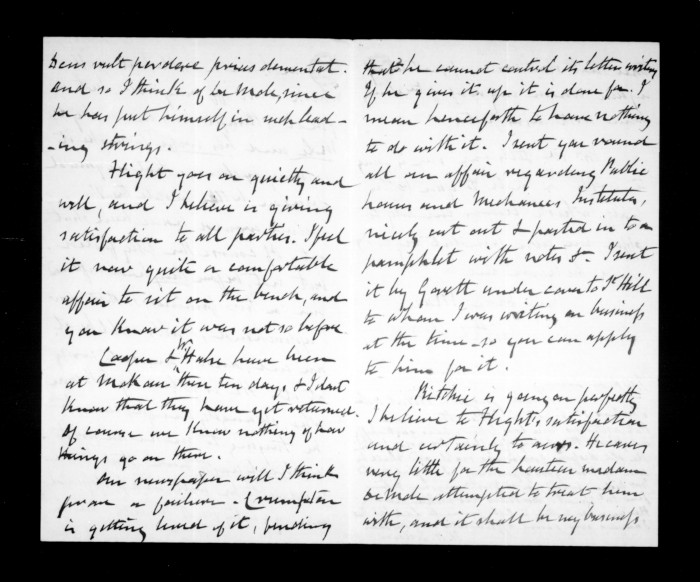 Deus vult perdere prius dementat.
And so I think of be Mole, since
he has put himself in such lead-
-ing strings.
Flight goes on quietly and
well and I believe is giving
satisfaction to all parties. I feel
it now quite a comfortable
affair to sit on the bench, and
you know it was not so before
Cooper & Wm Halse have been
at Mokau these ten days, & I dont
know that they have yet returned.
Of course we know nothing of how
things go on there.
Our newspaper will I think
prove a failure - Crompton
is getting tired of it, finding
that he cannot control its letter writing
If he gives it up it is done for. I
mean henceforth to have nothing
to do with it. I sent you round
all our affair regarding Public
houses and Mechanics Institutes,
nicely cut out & pasted in to a
pamphlet with notes &c. I sent
it by Govett under cover to St Hill
to whom I was writing on business
at the time - so you can apply
to him for it.
Ritchie is going on perfectly
I believe to Flight's satisfaction
and certainly to ours. He cares
very little for the
be Mole attempted to treat him
with, and it shall be my business